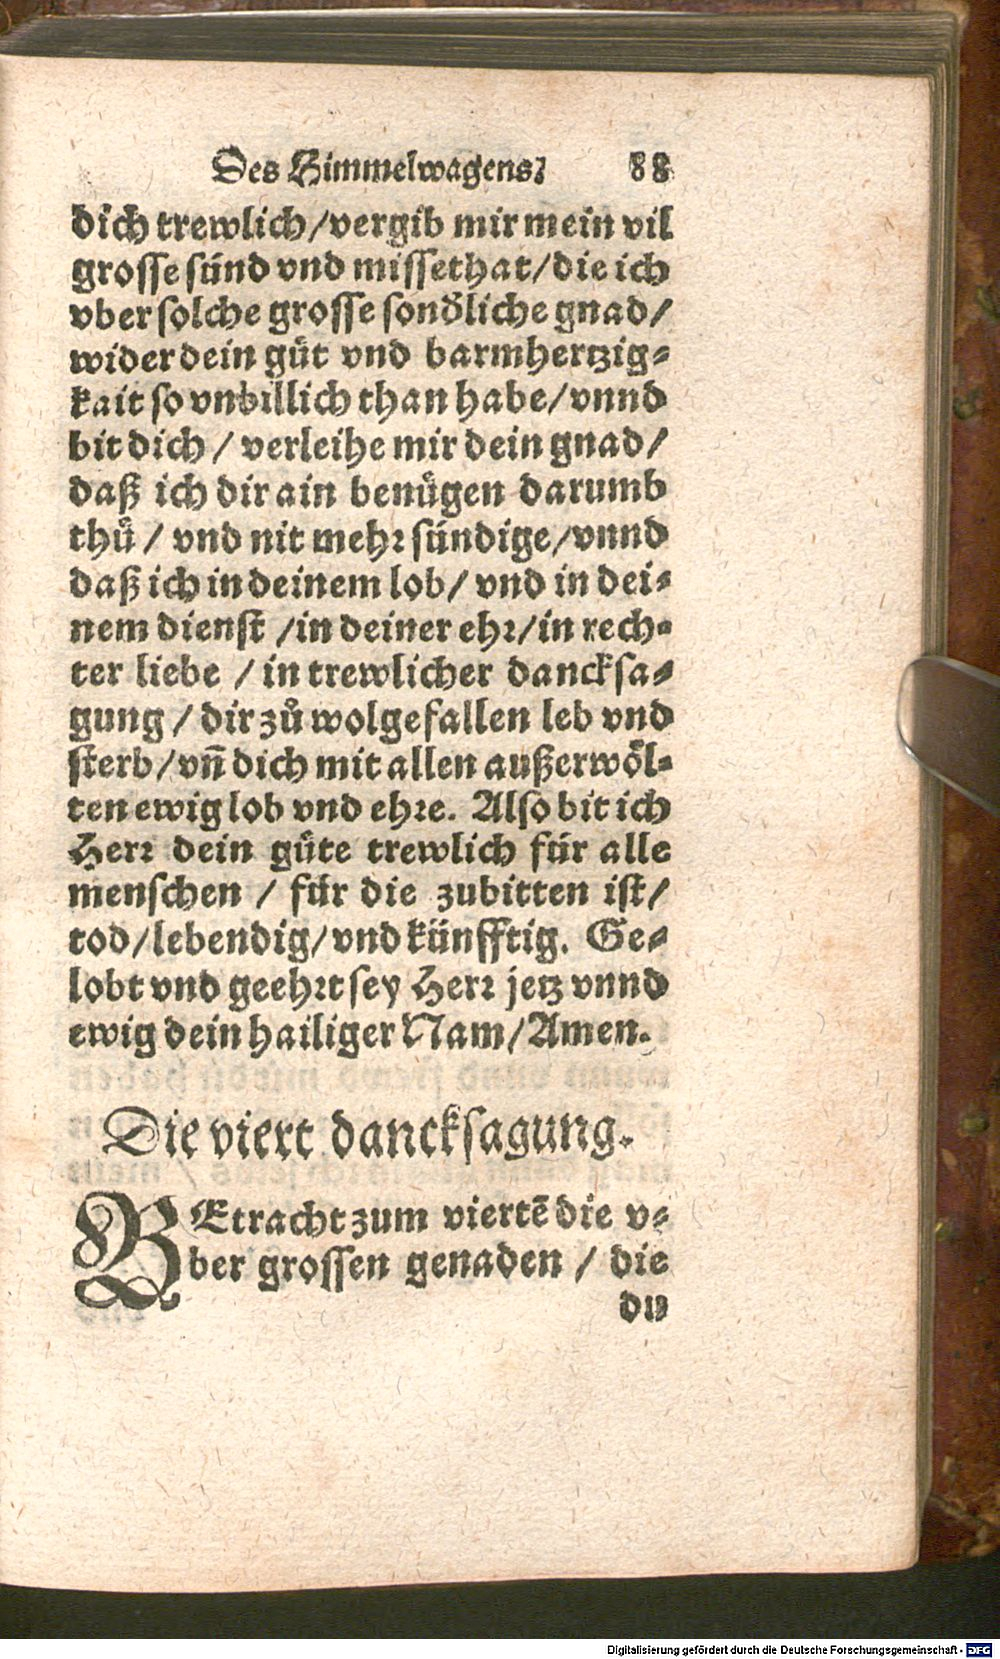 Des Himmelwagens? 88
dich trewlich/vergib mir mein vil
grosse sünd vnd missethat/die ich
vber solche grosse sonďliche gnad/
wider dein guͤt vnd barmhertzig-
kait so vnbillich than habe/vnnd
bit dich / verleihe mir dein gnad/
daß ich dir ain benuͤgen darumb
thuͦ / vnd nit mehr sündige/vnnd
daß ich in deinem lob/ vnd in dei-
nem dienst /in deiner ehr/in rech-
ter liebe / in trewlicher dancksa-
gung / dir zuͦ wolgefallen leb vnd
sterb/vñ dich mit allen außerwoͤl-
ten ewig lob vnd ehre. Also bit ich
Herr dein guͤte trewlich für alle
menschen / für die zubitten ist/
tod/lebendig/vnd künfftig. Ge-
lobt vnd geehrt sey Herr jetz vnnd
ewig dein hailiger Nam/Amen.
Die viert dancksagung.
BEtracht zum viertē die v-
ber grossen genaden / die
du
Digitalisierung gefördert durch die Deutsche Forschungsgemeinschaft - DFG